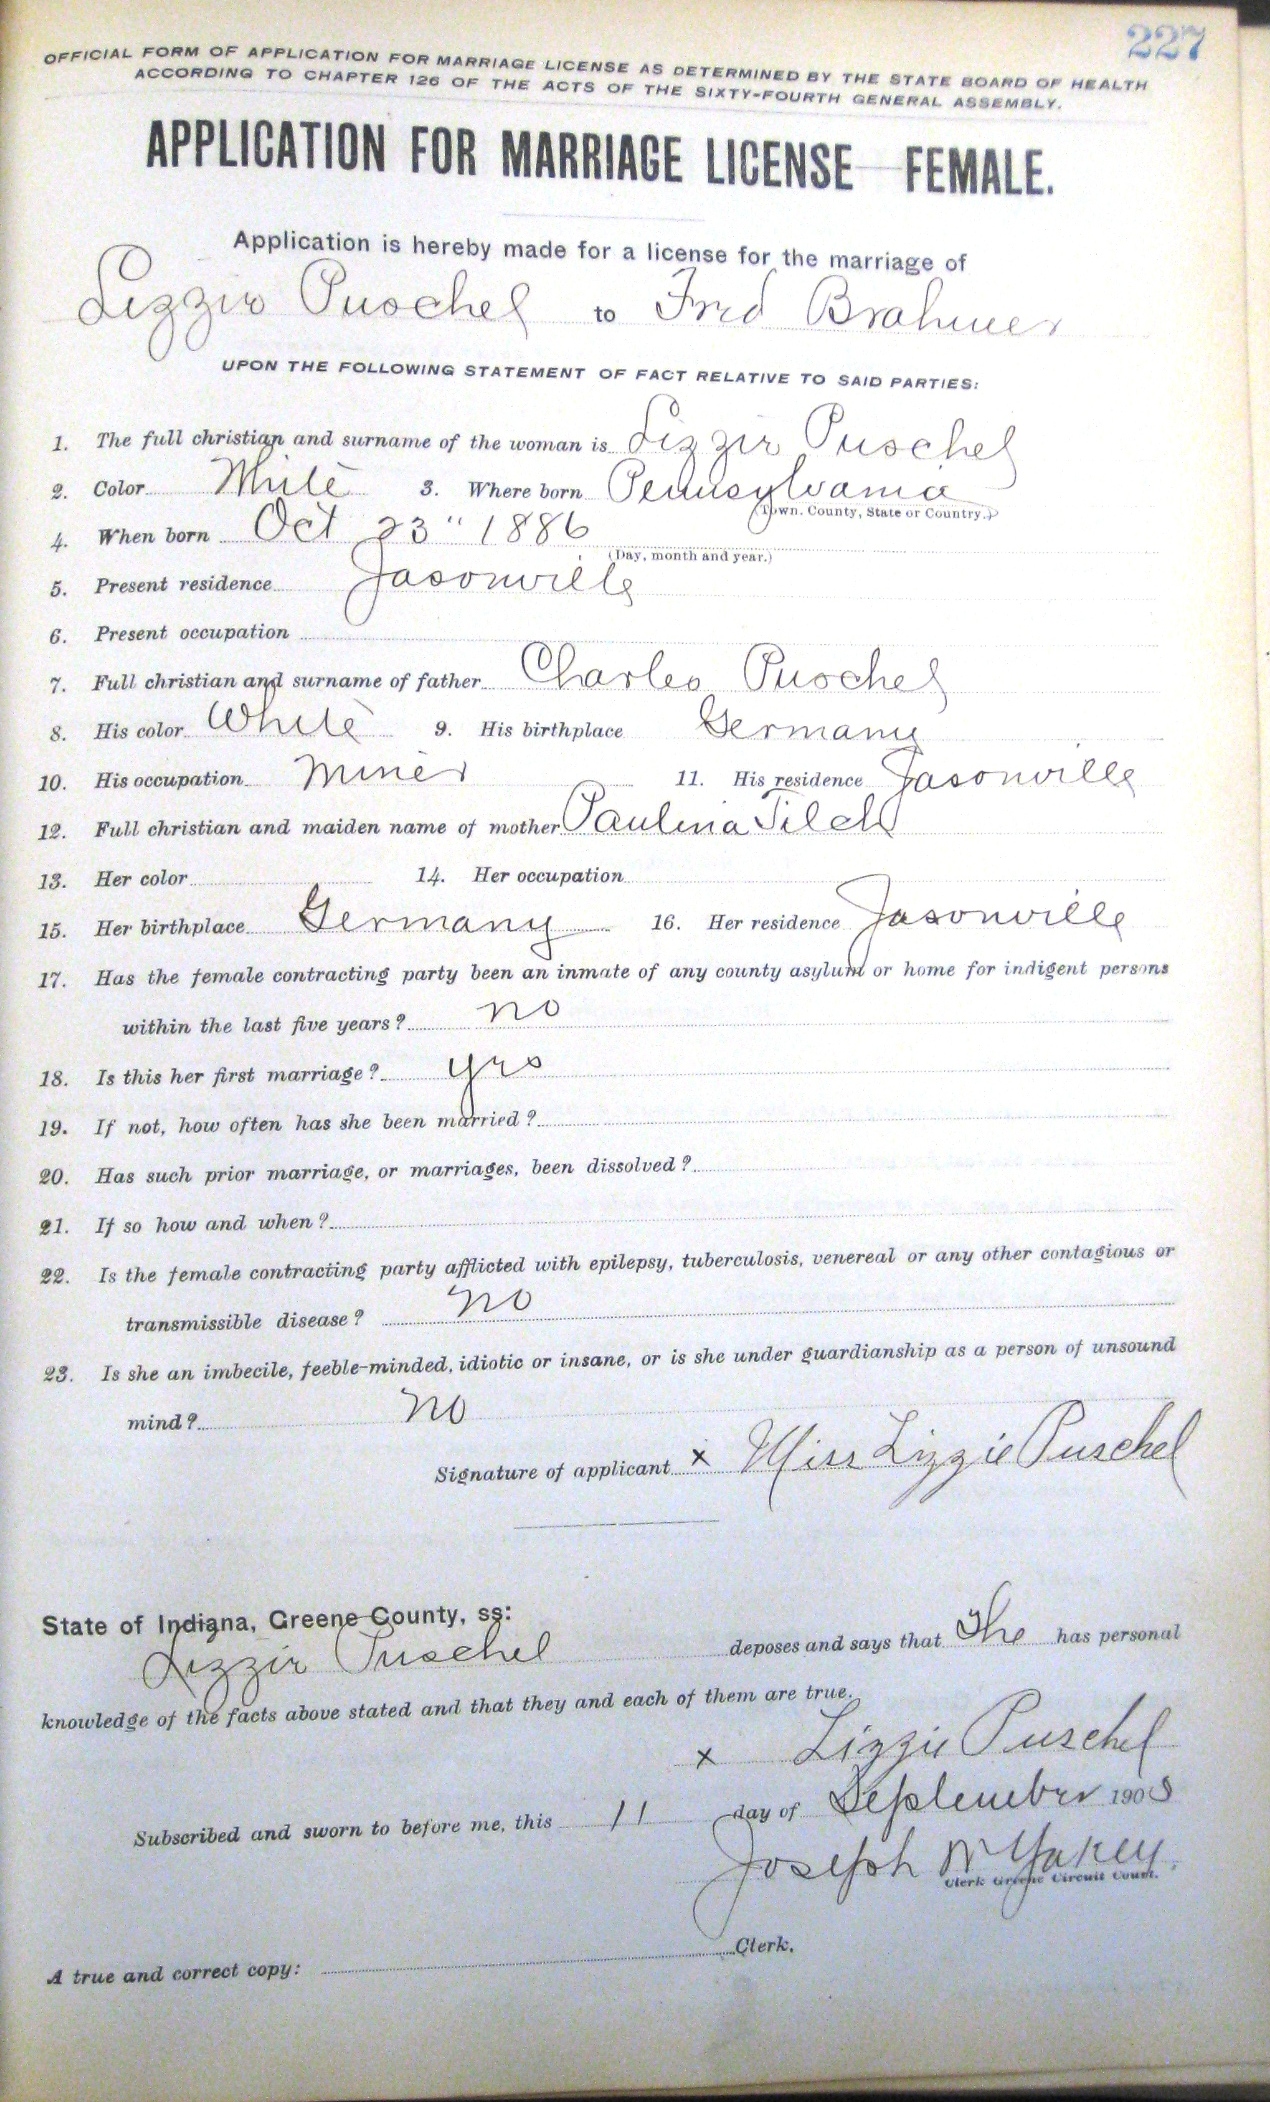 227
OFFICIAL FORM OF APPLICATION FOR MARRIAGE LICENSE AS DETERMINED BY THE STATE BOARD OF HEALTH
ACCORDING TO CHAPTER 126 OF THE ACTS OF THE SIXTY-FOURTH GENERAL ASSEMBLY.
APPLICATION FOR MARRIAGE LICENSE FEMALE.
Application is hereby made for a license for the marriage of
Lizzie Puschel to Fred Brahmer
UPON THE FOLLOWING STATEMENT OF FACT RELATIVE TO SAID PARTIES:
1. The full christian and surname of the woman is Lizzie Puschel
2. Color White 3. Where born Pennsylvania
(Town. County, State or Country.)
4. When born Oct 23" 1886
(Day, month and year.)
5. Present residence Jasonville
6. Present occupation
7. Full christian and surname of father Charles Puschel
8. His color White 9. His birthplace Germany
10. His occupation Miner 11. His residence Jasonville
12. Full christian and maiden name of mother Paulina Tilch
13. Her color 14. Her occupation
15. Her birthplace Germany 16. Her residence Jasonville
17. Has the female contracting party been an inmate of any county asylum or home for indigent persons
within the last five years? no
18. Is this her first marriage? yes
19. If not, how often has she been married?
20. Has such prior marriage, or marriages, been dissolved?
21. If so how and when?
22. Is the female contracting party afflicted with epilepsy, tuberculosis, venereal or any other contagious or
transmissible disease? no
23. Is she an imbecile, feeble-minded, idiotic or insane, or is she under guardianship as a person of unsound
mind? no
Signature of applicant x Miss Lizzie Puschel
State of Indiana, Greene County, ss:
Lizzie Puschel deposes and says that She has personal
knowledge of the facts above stated and that they and each of them are true.
x Lizzie Puschel
Subscribed and sworn to before me, this 11 day of September 1905
Joseph W Yakey
Clerk Greene Circuit Court.
A true and correct copy: Clerk.